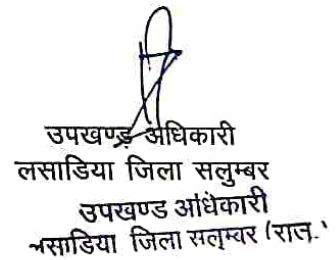 उपखण्ड अधिकारी
लसाडिया जिला सलुम्बर
उपखण्ड अधिकारी
लसाडिया जिला सलुम्बर (राज.)